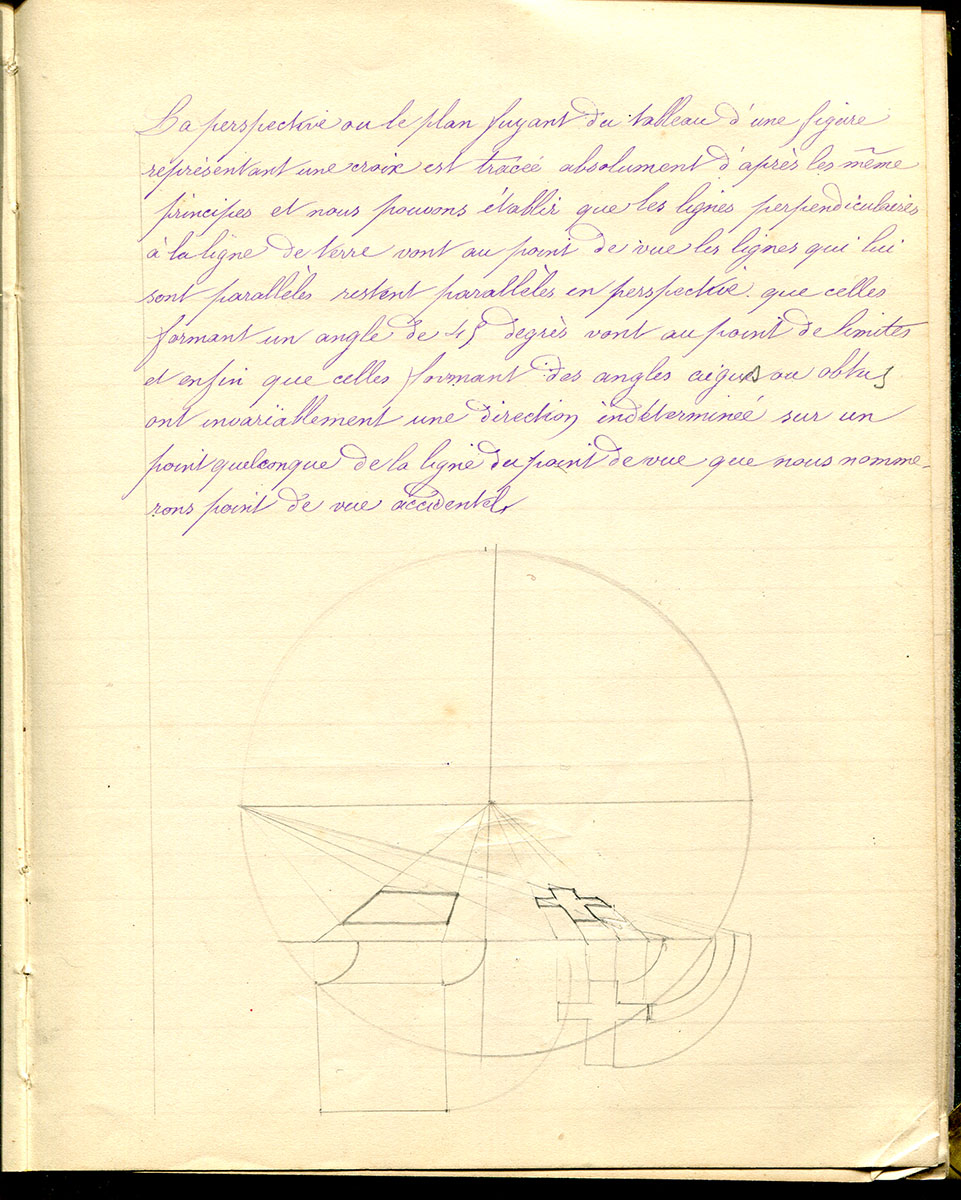 La perspective ou le plan fuyant du tableau d'une figure
représentant une croix est tracée absolument d'après les même
principes et nous pouvons établir que les lignes perpendiculaires
à la ligne de terre vont au point de vue les lignes qui lui
sont parallèles restent parallèles en perspective. que celles
formant un angle de 45 degrès vont au point de limites
et enfin que celles formant des angles aigus ou obtus
ont invariablement une direction indéterminée sur un
point quelconque de la ligne du point de vue que nous nomme-
rons point de vue accidentel.